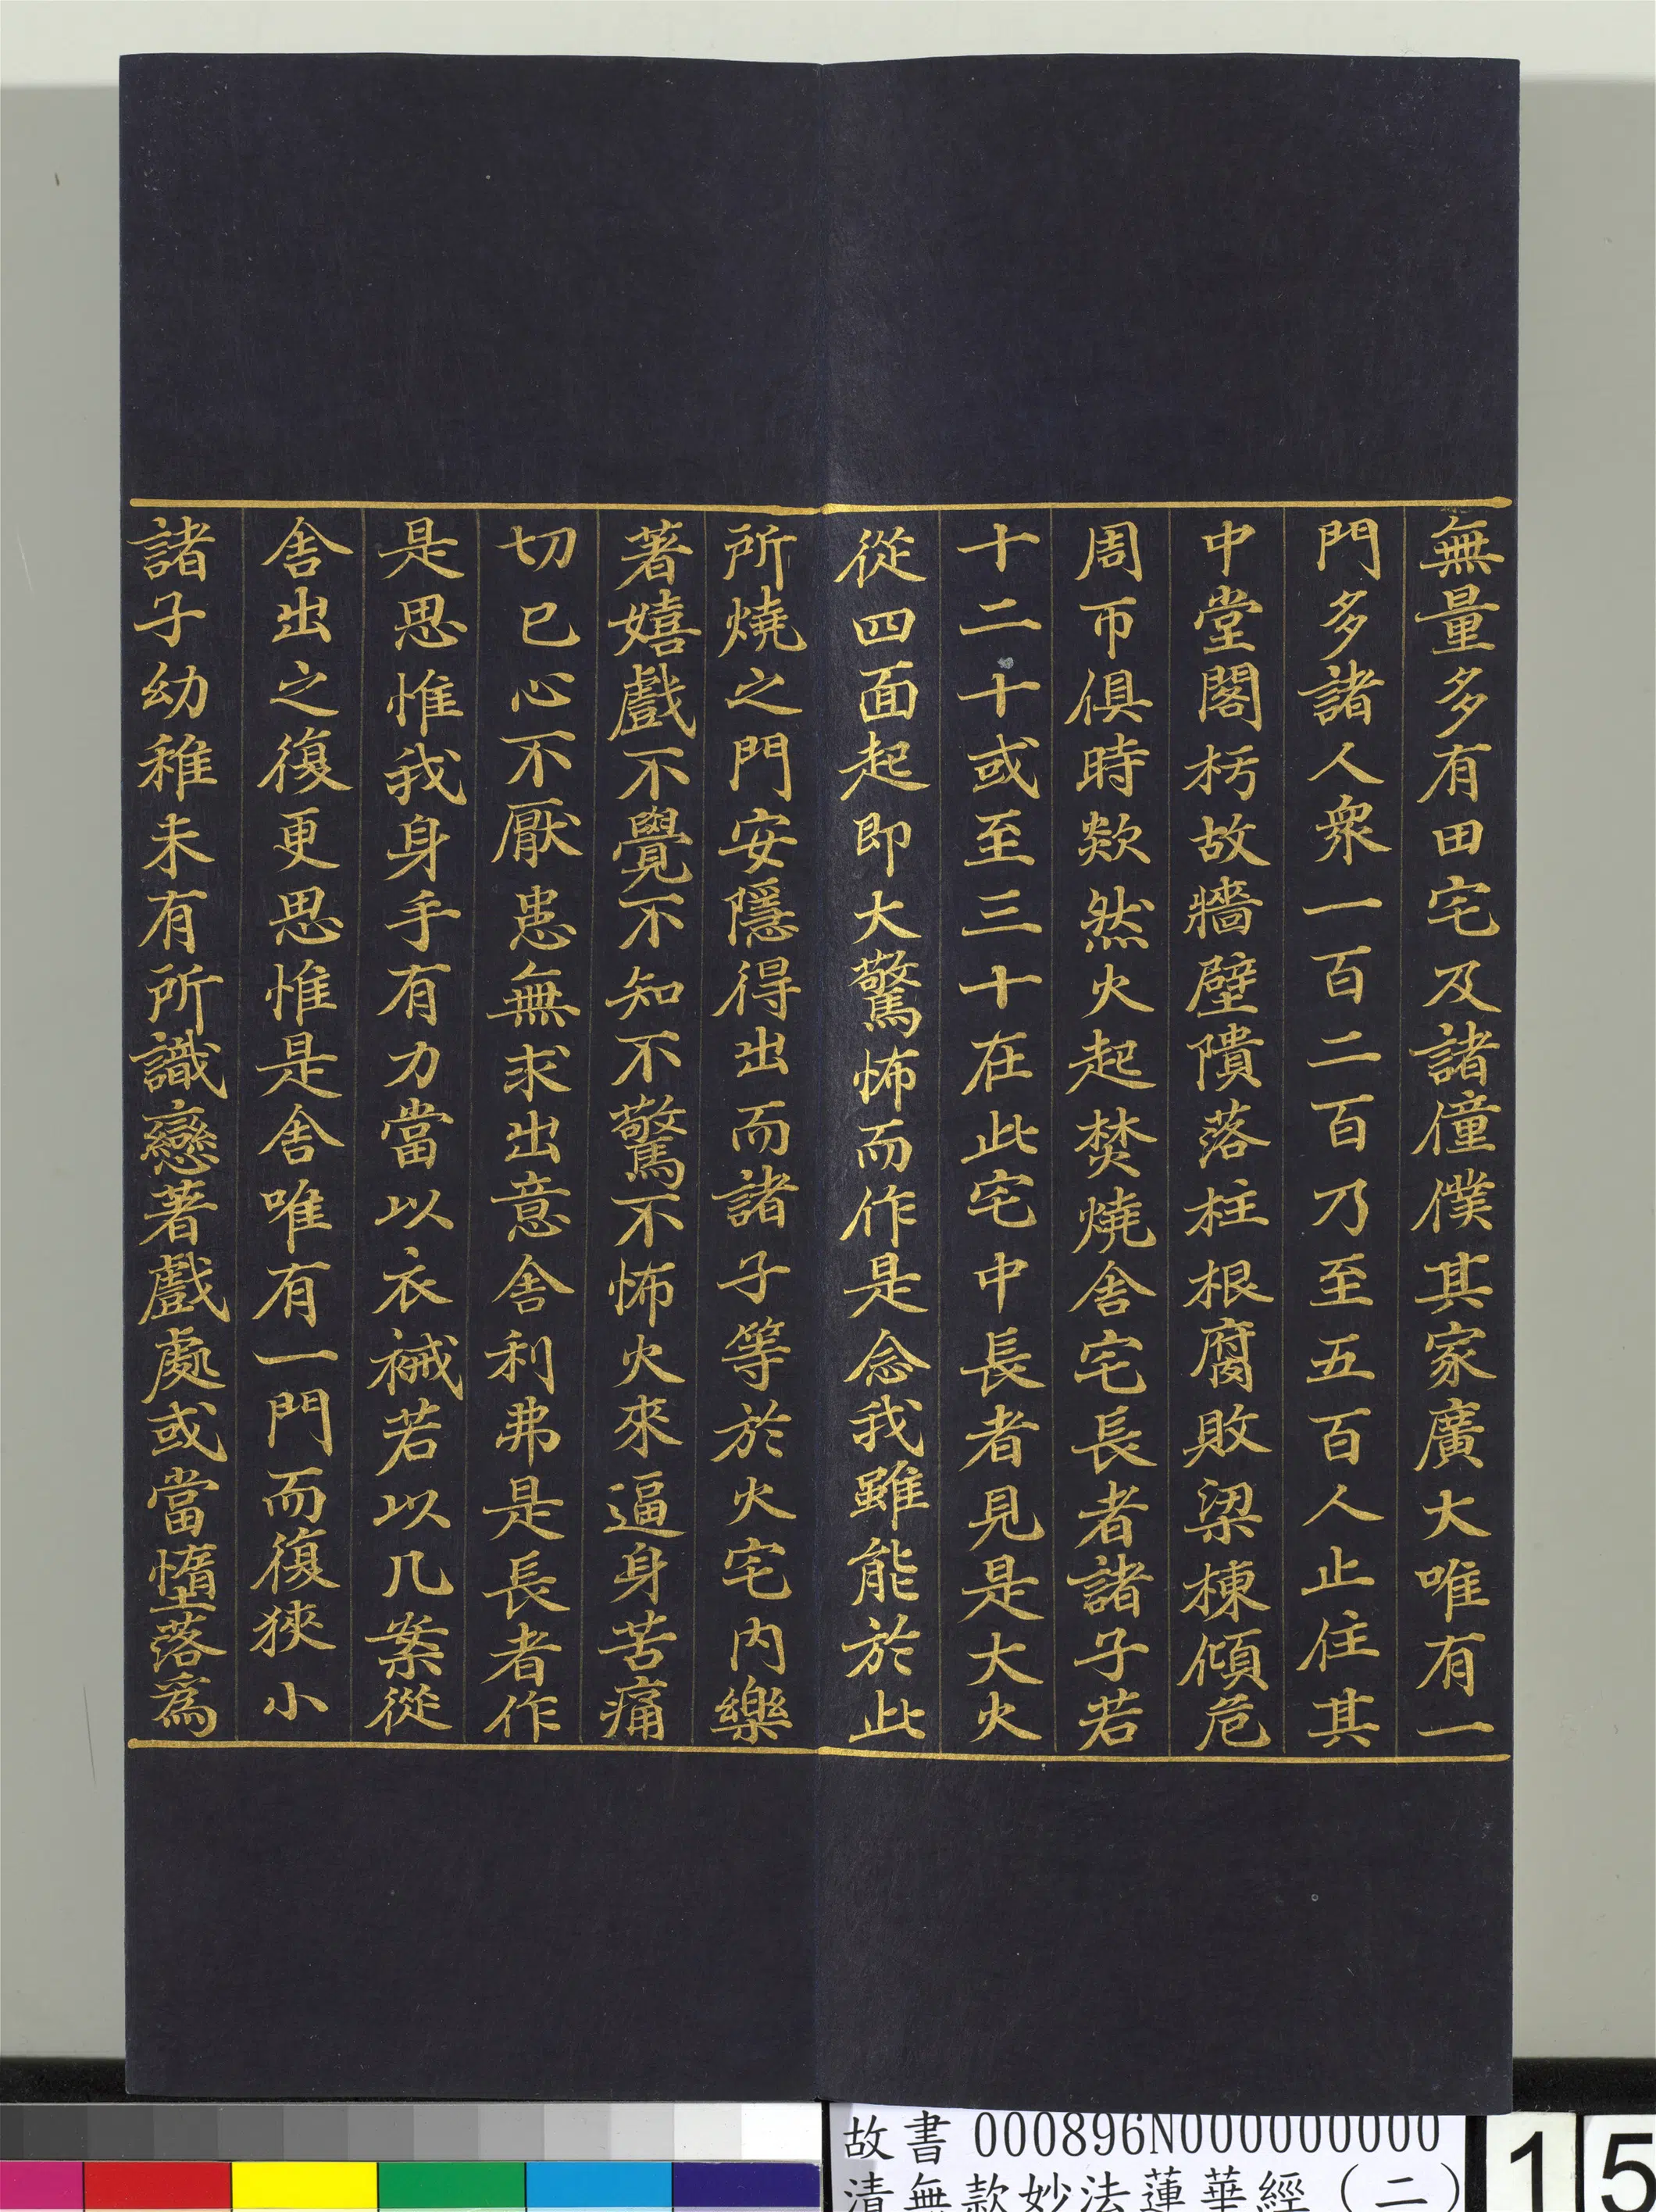 無量多有田宅及諸僮僕其家廣大唯有一
門多諸人衆一百二百乃至五百人止住其
中堂閣朽故牆壁隤落柱根腐敗梁棟傾危
周帀俱時欻然火起焚燒舍宅長者諸子若
十二十或至三十在此宅中長者見是大火
從四面起即大驚怖而作是念我雖能於此
所燒之門安隱得出而諸子等於火宅內樂
著嬉戲不覺不知不驚不怖火來逼身苦痛
切已心不厭患無求出意舍利弗是長者作
是思惟我身手有力當以衣祴若以几案從
舍出之復更思惟是舍唯有一門而復狹小
諸子幼稚未有所識戀著戲處或當墮落爲
故書 000896N000000000
清無款妙法蓮華經（二）
15